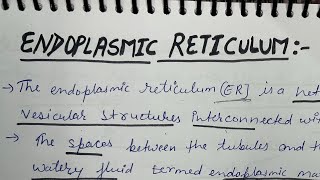 ENDOPLASMIC RETICULUM:-
→ The endoplasmic reticulum [ER] is a net
vesicular structures interconnected wi
→ The spaces between the tubules and th
watery fluid termed endoplasmic ma